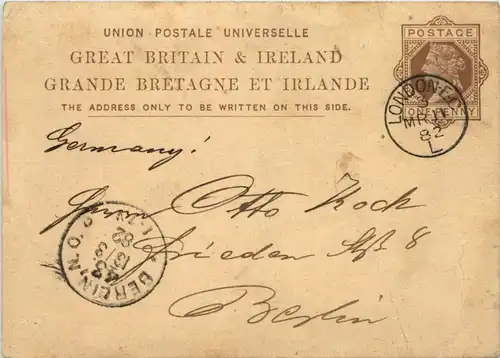 UNION POSTALE UNIVERSELLE
GREAT BRITAIN & IRELAND
GRANDE BRETAGNE ET IRLANDE
THE ADDRESS ONLY TO BE WRITTEN ON THIS SIDE.
POSTAGE
ONE PENNY
LONDON·E.C
MR 11
82
L
Germany!
Herrn Otto Koch
Frieden Str 8
Berlin
BERLIN, N.O.
13/3
82